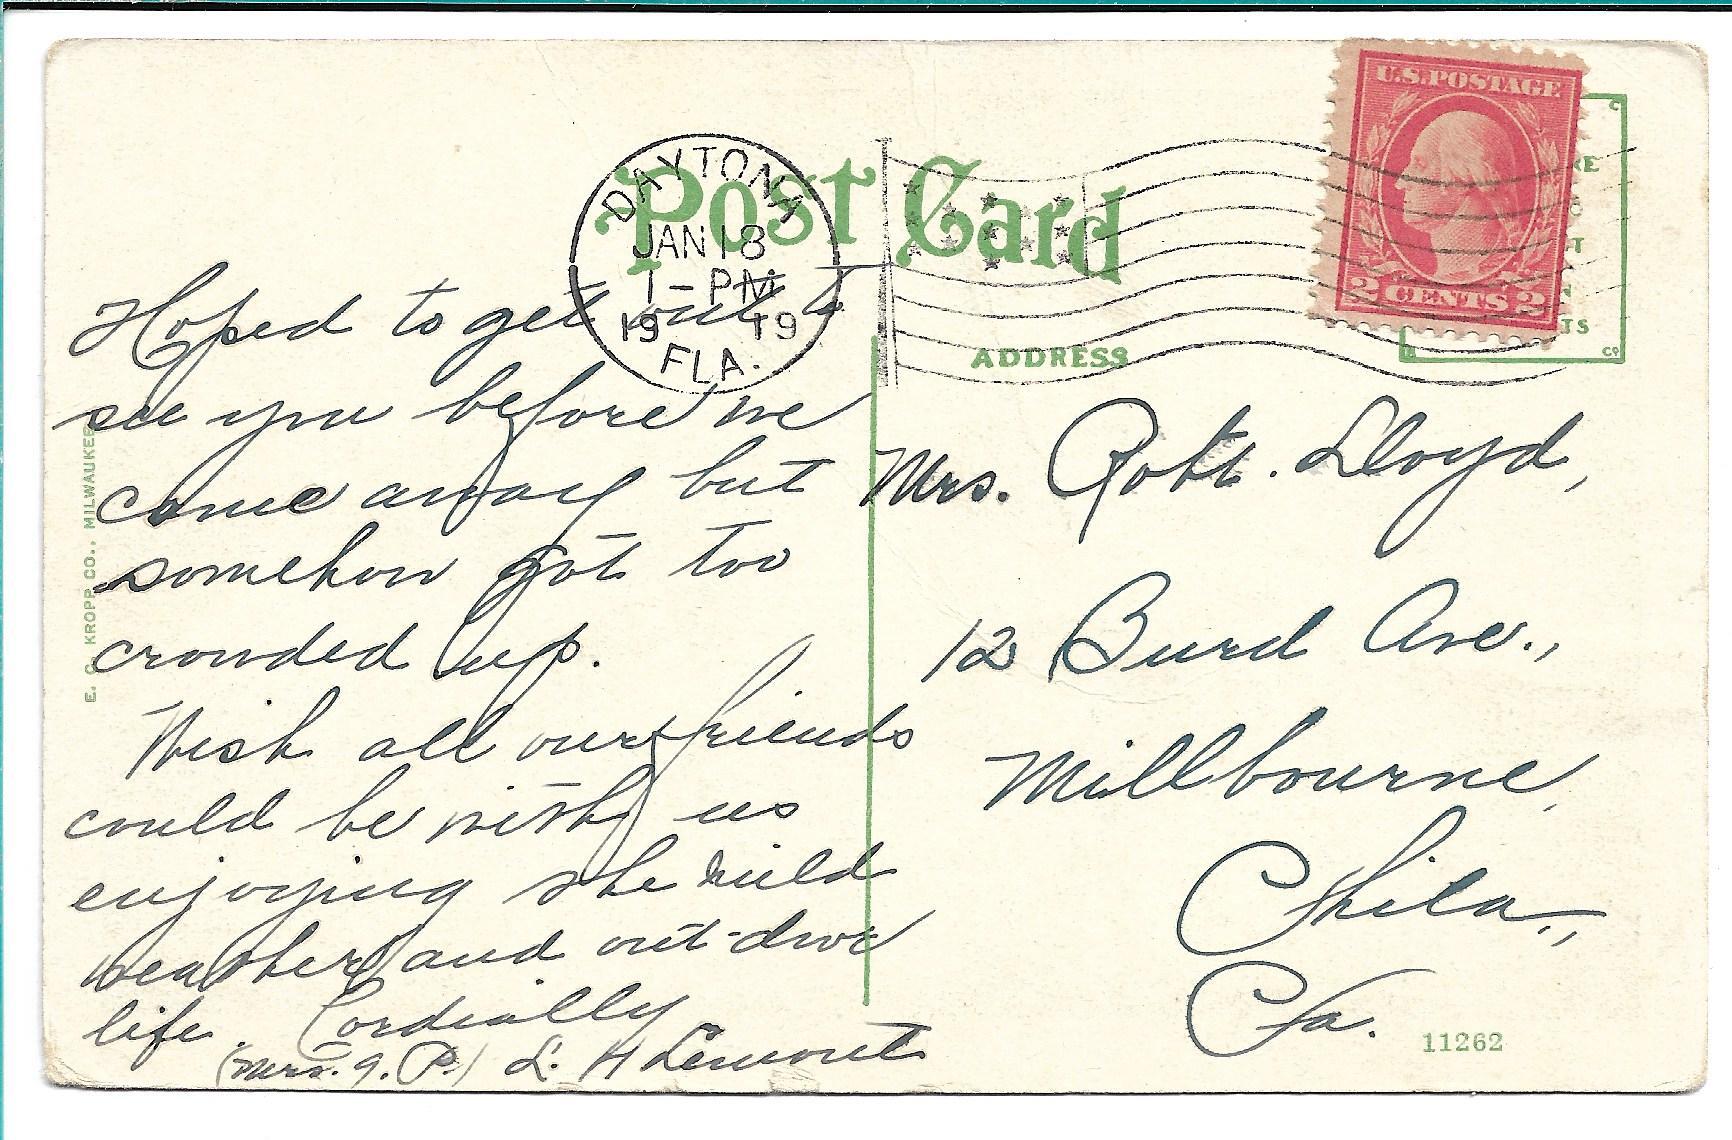 Post Card
DAYTONA
JAN 18
1-PM
19 19
FLA.
U.S. POSTAGE
2 CENTS 2
ADDRESS
Hoped to get out to
see you before we
came away but
somehow got too
crowded up.
Wish all our friends
could be with us
enjoying the mild
weather and out-door
life. Cordially
(Mrs. J. P.) L. H Lemont
Mrs. Robt. Lloyd,
12 Burd Ave.,
Millbourne,
Phila.,
Pa.
11262
E. C. KROPP CO., MILWAUKEE